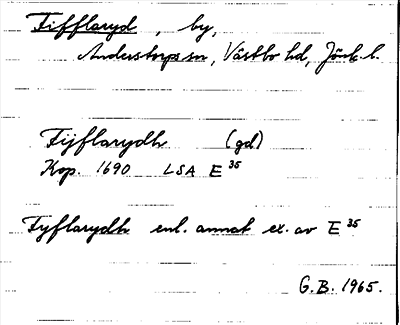 Fifflaryd, by,
Anderstorps sn, Västbo hd, Jönk. l.
Fijflarydh (gd)
Kop. 1690 LSA E 35
Fyflarydh enl. annat ex. av E 35
G.B. 1965.